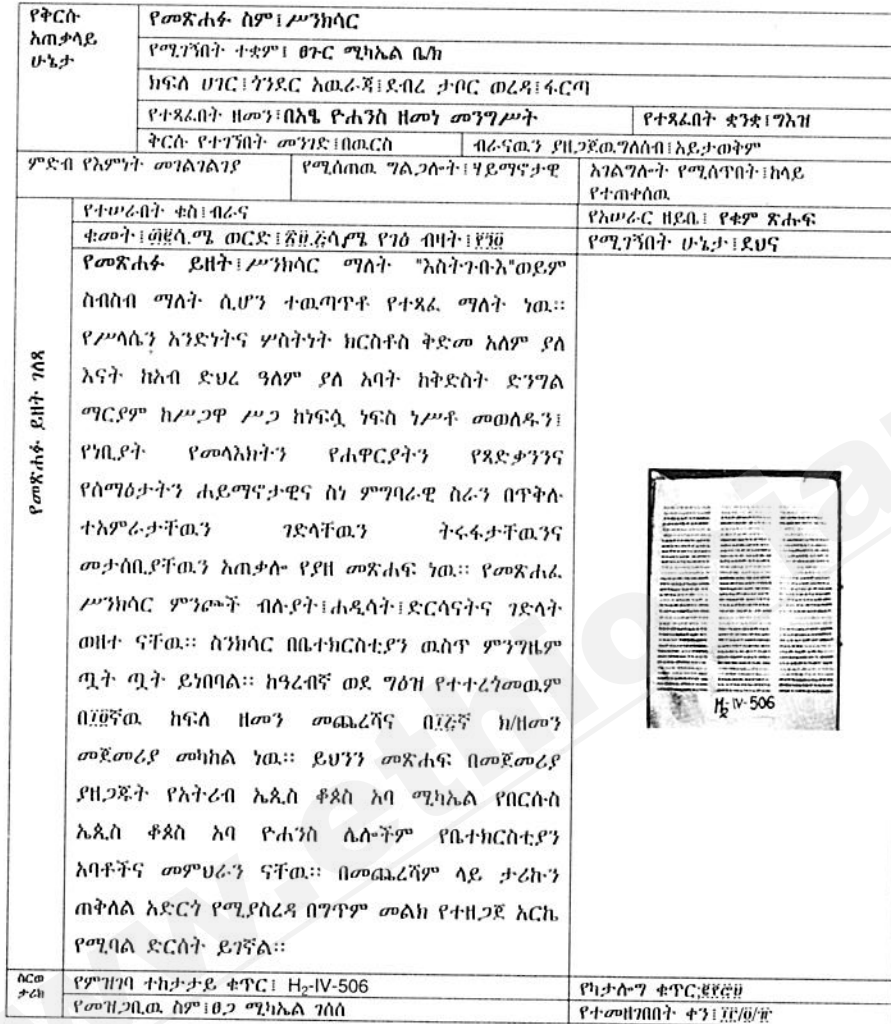 የቅርሱ አጠቃላይ ሁኔታ
የመጽሐፉ ስም፤ሥንክሳር
የሚገኝበት ተቋም፤ ፀጉር ሚካኤል ቤ/ክ
ክፍለ ሀገር፤ጎንደር አዉራጃ፤ደብረ ታቦር ወረዳ፤ፋርጣ
የተጻፈበት ዘመን፤በአፄ ዮሐንስ ዘመነ መንግሥት የተጻፈበት ቋንቋ፤ግእዝ
ቅርሱ የተገኘበት መንገድ፤በዉርስ ብራናዉን ያዘጋጀዉግለሰብ፤አይታወቅም
ምድብ የእምነት መገልገልገያ የሚሰጠዉ ግልጋሎት፤ሃይማኖታዊ አገልግሎት የሚሰጥበት፤ከላይ የተጠቀሰዉ
የተሠራበት ቁስ፤ብራና የአሠራር ዘይቤ፤ የቁም ጽሑፍ
ቁመት፤ ወርድ፤ የገፅ ብዛት፤
የሚገኝበት ሁኔታ፤ደህና
የመጽሐፉ ይዘት ገለጻ
የመጽሐፉ ይዘት፤ሥንክሳር ማለት "እስትጉቡእ"ወይም
ስብስብ ማለት ሲሆን ተዉጣጥቶ የተጻፈ ማለት ነዉ።
የሥላሴን አንድነትና ሦስትነት ክርስቶስ ቅድመ አለም ያለ
እናት ከአብ ድህረ ዓለም ያለ አባት ከቅድስት ድንግል
ማርያም ከሥጋዋ ሥጋ ከነፍሷ ነፍስ ነሥቶ መወለዱን፤
የነቢያት የመላእክትን የሐዋርያትን የጻድቃንንና
የሰማዕታትን ሐይማኖታዊና ስነ ምግባራዊ ስራን በጥቅሉ
ተአምራታቸዉን ገድላቸዉን ትሩፋታቸዉንና
መታሰቢያቸዉን አጠቃሎ የያዘ መጽሐፍ ነዉ። የመጽሐፈ
ሥንክሳር ምንጮች ብሉያት፤ሐዲሳት፤ድርሳናትና ገድላት
ወዘተ ናቸዉ። ስንክሳር በቤተክርስቲያን ዉስጥ ምንግዜም
ጧት ጧት ይነበባል። ከዓረብኛ ወደ ግዕዝ የተተረጎመዉም
በ፲፬ኛዉ ክፍለ ዘመን መጨረሻና በ፲፭ኛ ክ/ዘመን
መጀመሪያ መካከል ነዉ። ይህንን መጽሐፍ በመጀመሪያ
ያዘጋጁት የአትሪብ ኤጲስ ቆጶስ አባ ሚካኤል የበርሱስ
ኤጲስ ቆጶስ አባ ዮሐንስ ሌሎችም የቤተክርስቲያን
አባቶችና መምህራን ናቸዉ። በመጨረሻም ላይ ታሪኩን
ጠቅለል አድርጎ የሚያስረዳ በግጥም መልክ የተዘጋጀ አርኬ
የሚባል ድርሰት ይገኛል።
H₂-IV-506
ስርወ ታሪክ
የምዝገባ ተከታታይ ቁጥር፤ H₂-IV-506 የካታሎግ ቁጥር፤
የመዝጋቢዉ ስም፤ፀጋ ሚካኤል ገሰሰ የተመዘገበበት ቀን፤